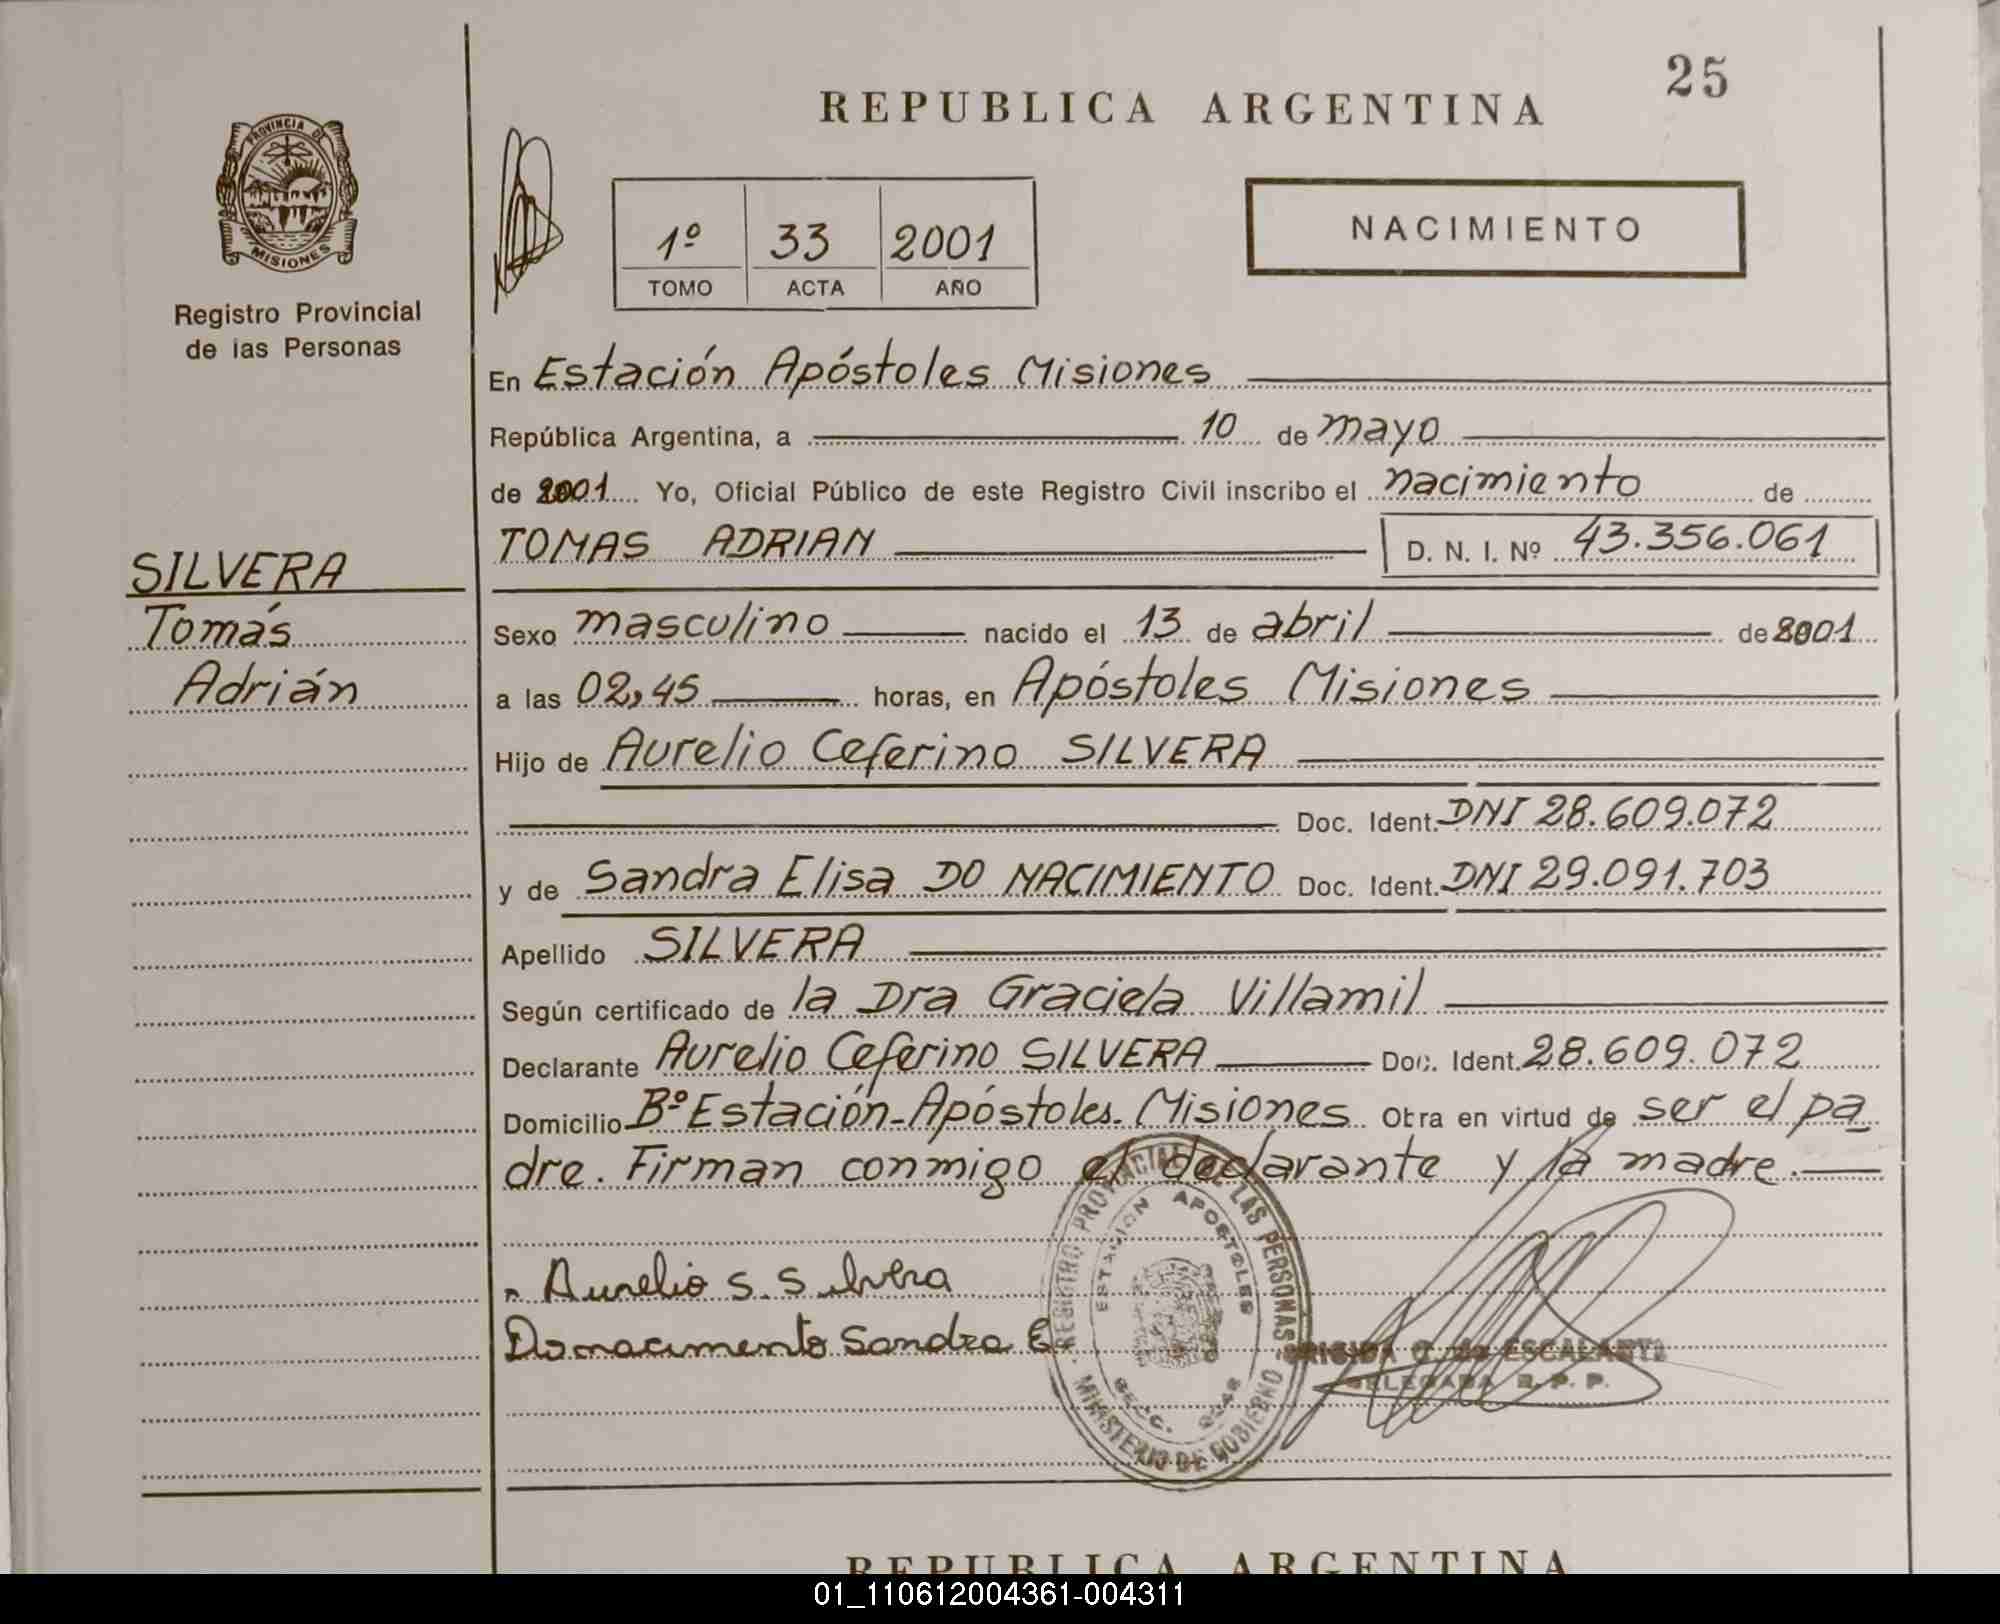 25
REPUBLICA ARGENTINA
PROVINCIA DE
MISIONES
Registro Provincial
de las Personas
1º 33 2001
TOMO ACTA AÑO
NACIMIENTO
En Estación Apóstoles Misiones
República Argentina, a 10 de mayo
de 2001 Yo, Oficial Público de este Registro Civil inscribo el nacimiento de
TOMAS ADRIAN D. N. I. Nº 43.356.061
SILVERA
Tomás
Adrián
Sexo masculino nacido el 13 de abril de 2001
a las 02,45 horas, en Apóstoles Misiones
Hijo de Aurelio Ceferino SILVERA
Doc. Ident. DNI 28.609.072
y de Sandra Elisa DO NACIMIENTO Doc. Ident. DNI 29.091.703
Apellido SILVERA
Según certificado de la Dra Graciela Villamil
Declarante Aurelio Ceferino SILVERA Doc. Ident. 28.609.072
Domicilio Bº Estación-Apóstoles-Misiones Obra en virtud de ser el pa
dre. Firman conmigo el declarante y la madre.
Aurelio S. Silvera
Donacimento Sandra E
REGISTRO PROVINCIAL DE LAS PERSONAS
ESTACION APOSTOLES
MINISTERIO DE GOBIERNO
ESCALANTE
DELEGADA R. P. P.
REPUBLICA ARGENTINA
01_110612004361-004311